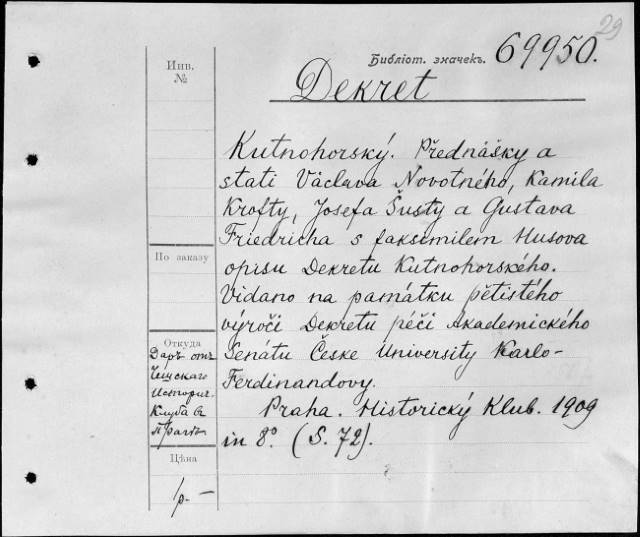 29
Библіот. значекъ. 69950.
Инв.
№
Dekret
Kutnohorský. Přednášky a
stati Václava Novotného, Kamila
Krofty, Josefa Šusty a Gustava
Friedricha s faksemilem Husova
opisu Dekretu Kutnohorského.
Vidano na památku pětistého
výročí Dekretu péčí Akademického
Senátu České University Karlo-
Ferdinandovy.
Praha. Historický Klub. 1909
in 8° (S. 72).
По заказу
Откуда
Даръ отъ
Чешскаго
Историч.
Клуба въ
Прагѣ
Цѣна
1р. —